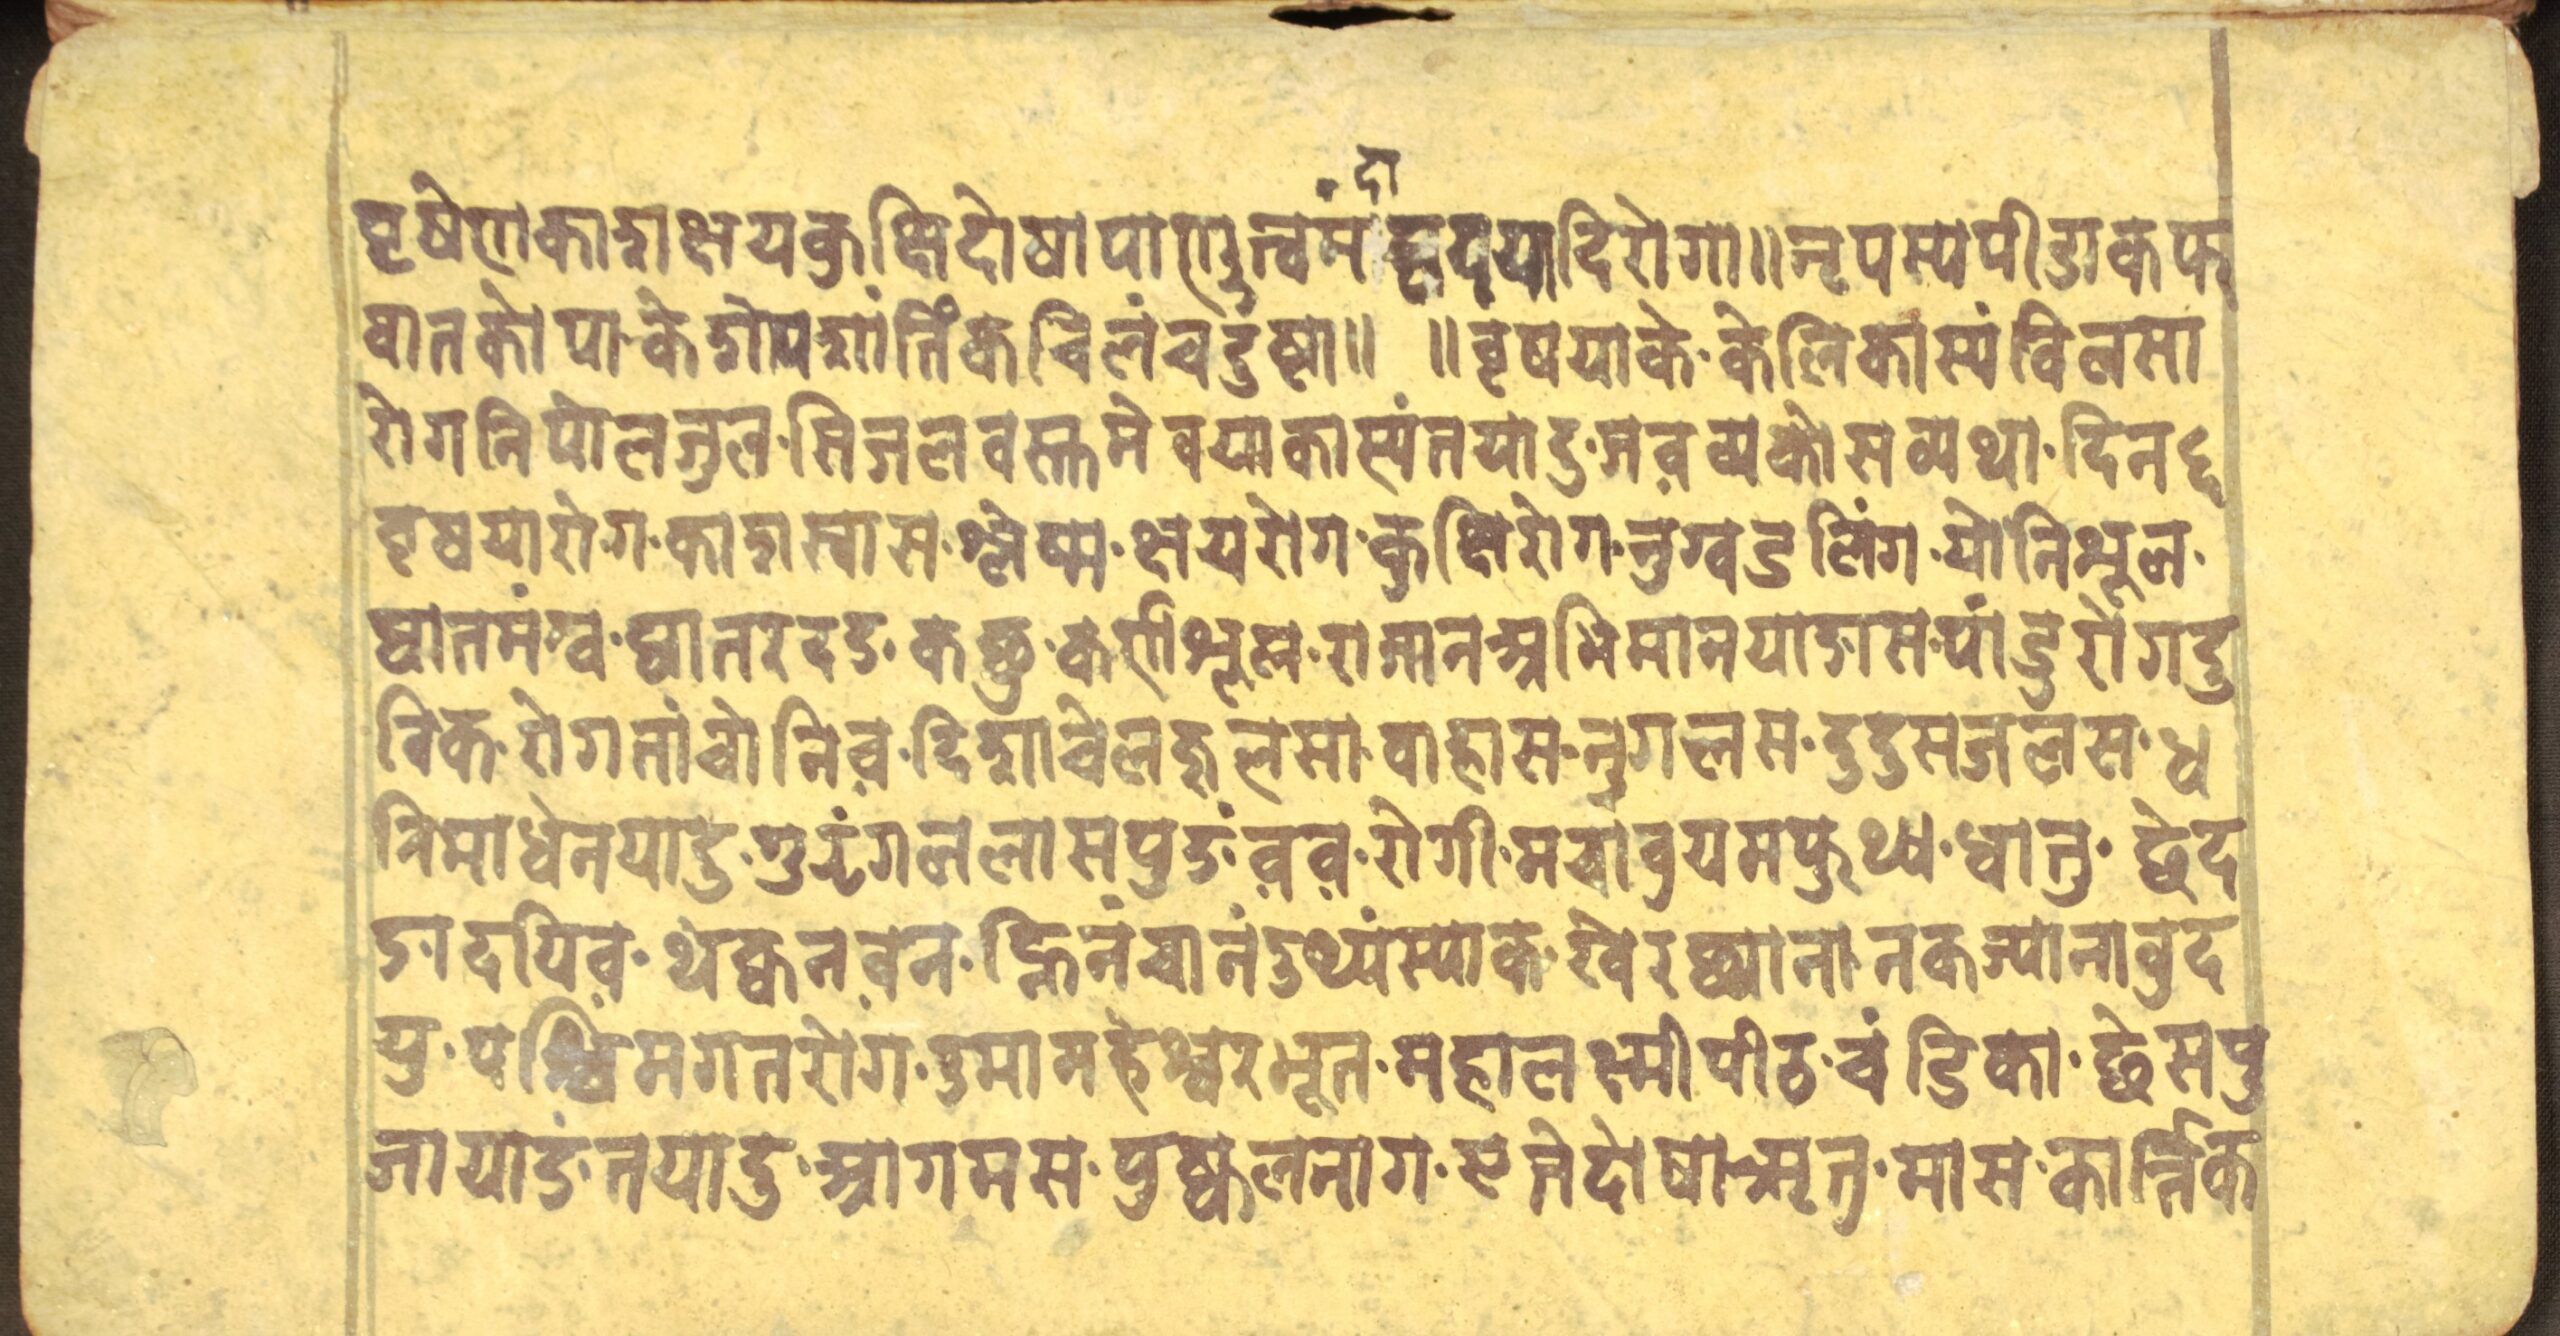 दा
वृषेणकाशक्षयकुक्षिदोषापाण्डुत्वमं हृदयादिरोगा॥नृपस्यपीडाकफ
वातकोपा·केशोपशांर्तिकचिलंचदुष्टा॥ ॥वृषयाके·केलिकास्यंविलसा
रोगनिपोलजुल·सिजलवस्तमेवयाकास्यंतयादु·जरव्यकोसव्यथा·दिनद्व
वृषयारोग·काशस्वास·श्लेष्म·क्षयरोग·कुक्षिरोग·नुग्वडलिंग·योनिभूल·
घातमंख·घातररदङ·कछु·कर्णभूल·राजानअभिमानयाङास·पांडुरोगदु
विक·रोगतांचोनिव़·दिशाचेलजुलसा·वाहास·नुगलस·दुदुसजलस·ध
त्रिमाधेनयादु·गुरुंगललासपुङंव़व़·रोगी·मचावुयमफुथ्य·धातु·छेद
ङादयिव़·थंक्वनव़न·ह्निनंचानंदुथ्यंस्याक·खेरछ्यानानकज्यानावुद
यु·पश्चिमगतरोग·उमामहेश्वरभूत·महालक्ष्मीपीठ·चंडिका·छेसपु
जायाङंतयादु·आगमस·पुष्कलनाग·हनेदोषा·मृतु·मास·कार्त्तिक